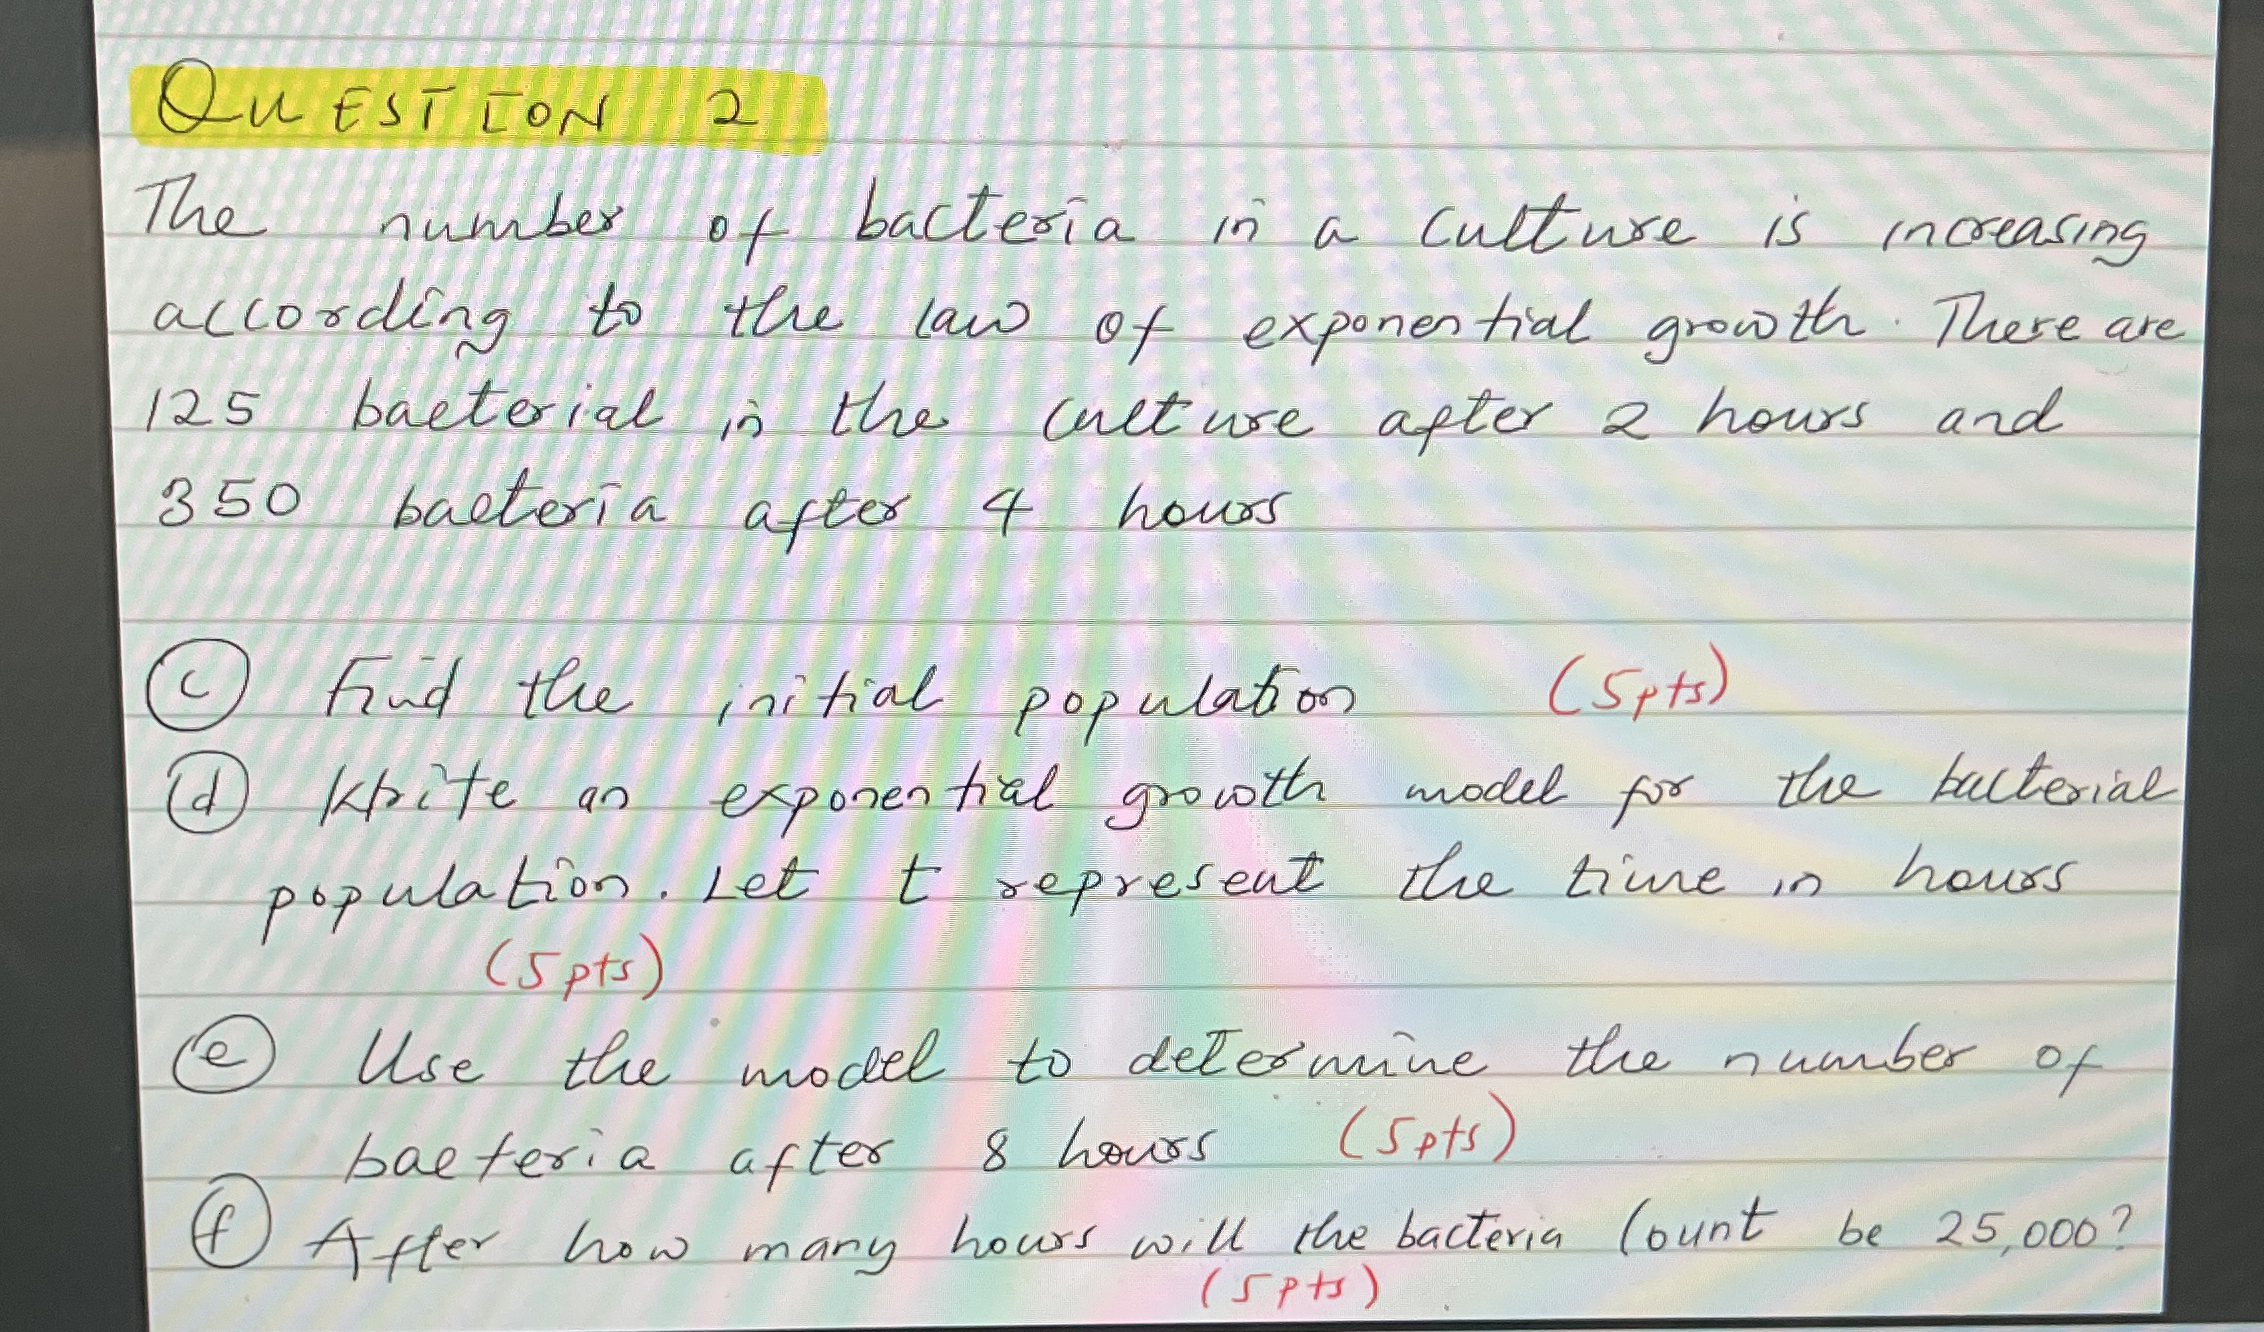 QUESTION 2
The number of bacteria in a culture is increasing
according to the law of exponential growth. There are
125 bacterial in the culture after 2 hours and
350 bacteria after 4 hours
(c) Find the initial population (5pts)
(d) Write an exponential growth model for the bacterial
population. Let t represent the time in hours
(5pts)
(e) Use the model to determine the number of
bacteria after 8 hours (5pts)
(f) After how many hours will the bacteria Count be 25,000?
(5pts)